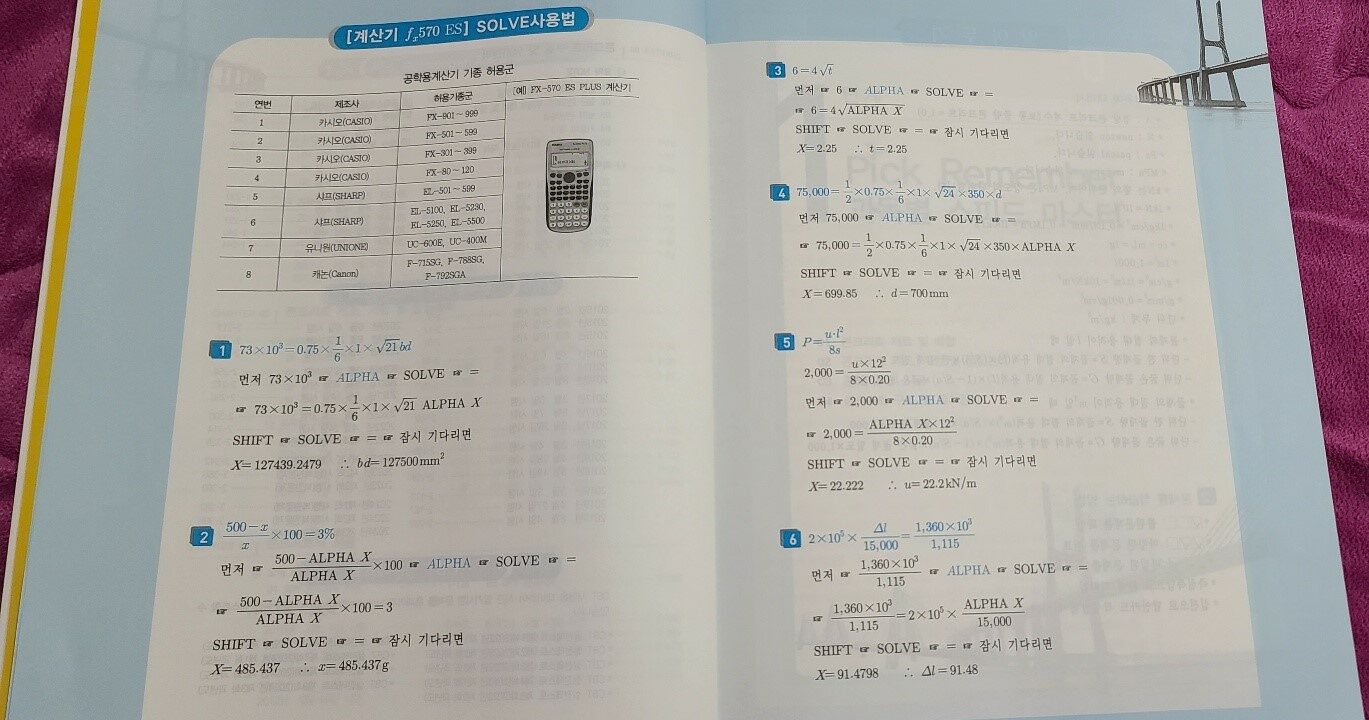 [계산기 fx570 ES] SOLVE사용법
공학용계산기 기종 허용군
연번 제조사 허용기종군 [예] FX-570 ES PLUS 계산기
1 카시오(CASIO) FX-901～999
2 카시오(CASIO) FX-501～599
3 카시오(CASIO) FX-301～399
4 카시오(CASIO) FX-80～120
5 샤프(SHARP) EL-501～599
6 샤프(SHARP) EL-5100, EL-5230,
EL-5250, EL-5500
7 유니원(UNIONE) UC-600E, UC-400M
8 캐논(Canon) F-715SG, F-788SG,
F-792SGA
1 73×10³=0.75×1/6×1×√21 bd
먼저 73×10³ ☞ ALPHA ☞ SOLVE ☞ =
☞ 73×10³=0.75×1/6×1×√21 ALPHA X
SHIFT ☞ SOLVE ☞ = ☞ 잠시 기다리면
X=127439.2479 ∴ bd=127500mm²
2 (500-x)/x×100=3%
먼저 ☞ (500-ALPHA X)/(ALPHA X)×100 ☞ ALPHA ☞ SOLVE ☞ =
☞ (500-ALPHA X)/(ALPHA X)×100=3
SHIFT ☞ SOLVE ☞ = ☞ 잠시 기다리면
X=485.437 ∴ x=485.437g
3 6=4√t
먼저 ☞ 6 ☞ ALPHA ☞ SOLVE ☞ =
☞ 6=4√ALPHA X
SHIFT ☞ SOLVE ☞ = ☞ 잠시 기다리면
X=2.25 ∴ t=2.25
4 75,000=1/2×0.75×1/6×1×√24×350×d
먼저 75,000 ☞ ALPHA ☞ SOLVE ☞ =
☞ 75,000=1/2×0.75×1/6×1×√24×350×ALPHA X
SHIFT ☞ SOLVE ☞ = ☞ 잠시 기다리면
X=699.85 ∴ d=700mm
5 P=u·l²/8s
2,000=(u×12²)/(8×0.20)
먼저 ☞ 2,000 ☞ ALPHA ☞ SOLVE ☞ =
☞ 2,000=(ALPHA X×12²)/(8×0.20)
SHIFT ☞ SOLVE ☞ = ☞ 잠시 기다리면
X=22.222 ∴ u=22.2kN/m
6 2×10⁵×Δl/15,000=(1,360×10³)/1,115
먼저 ☞ (1,360×10³)/1,115 ☞ ALPHA ☞ SOLVE ☞ =
☞ (1,360×10³)/1,115=2×10⁵×(ALPHA X)/15,000
SHIFT ☞ SOLVE ☞ = ☞ 잠시 기다리면
X=91.4798 ∴ Δl=91.48